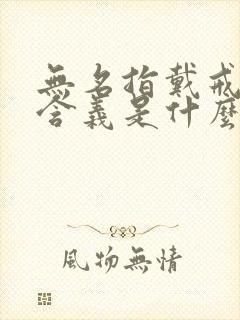 無名指戴戒
含義是什麼
風物無情